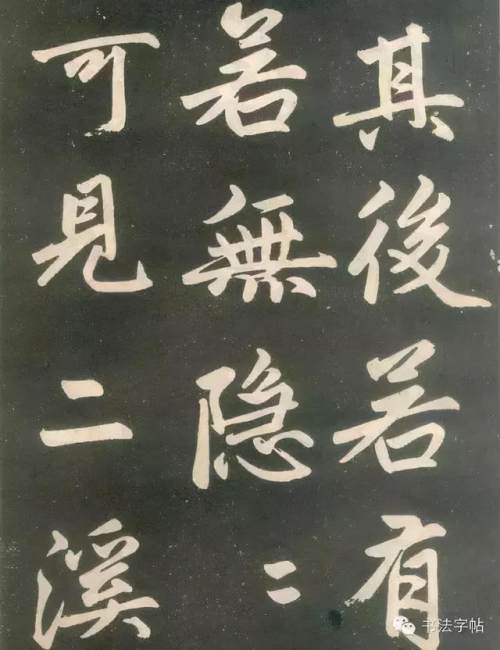 其後若有
若無隐二
可見二溪
书法字帖